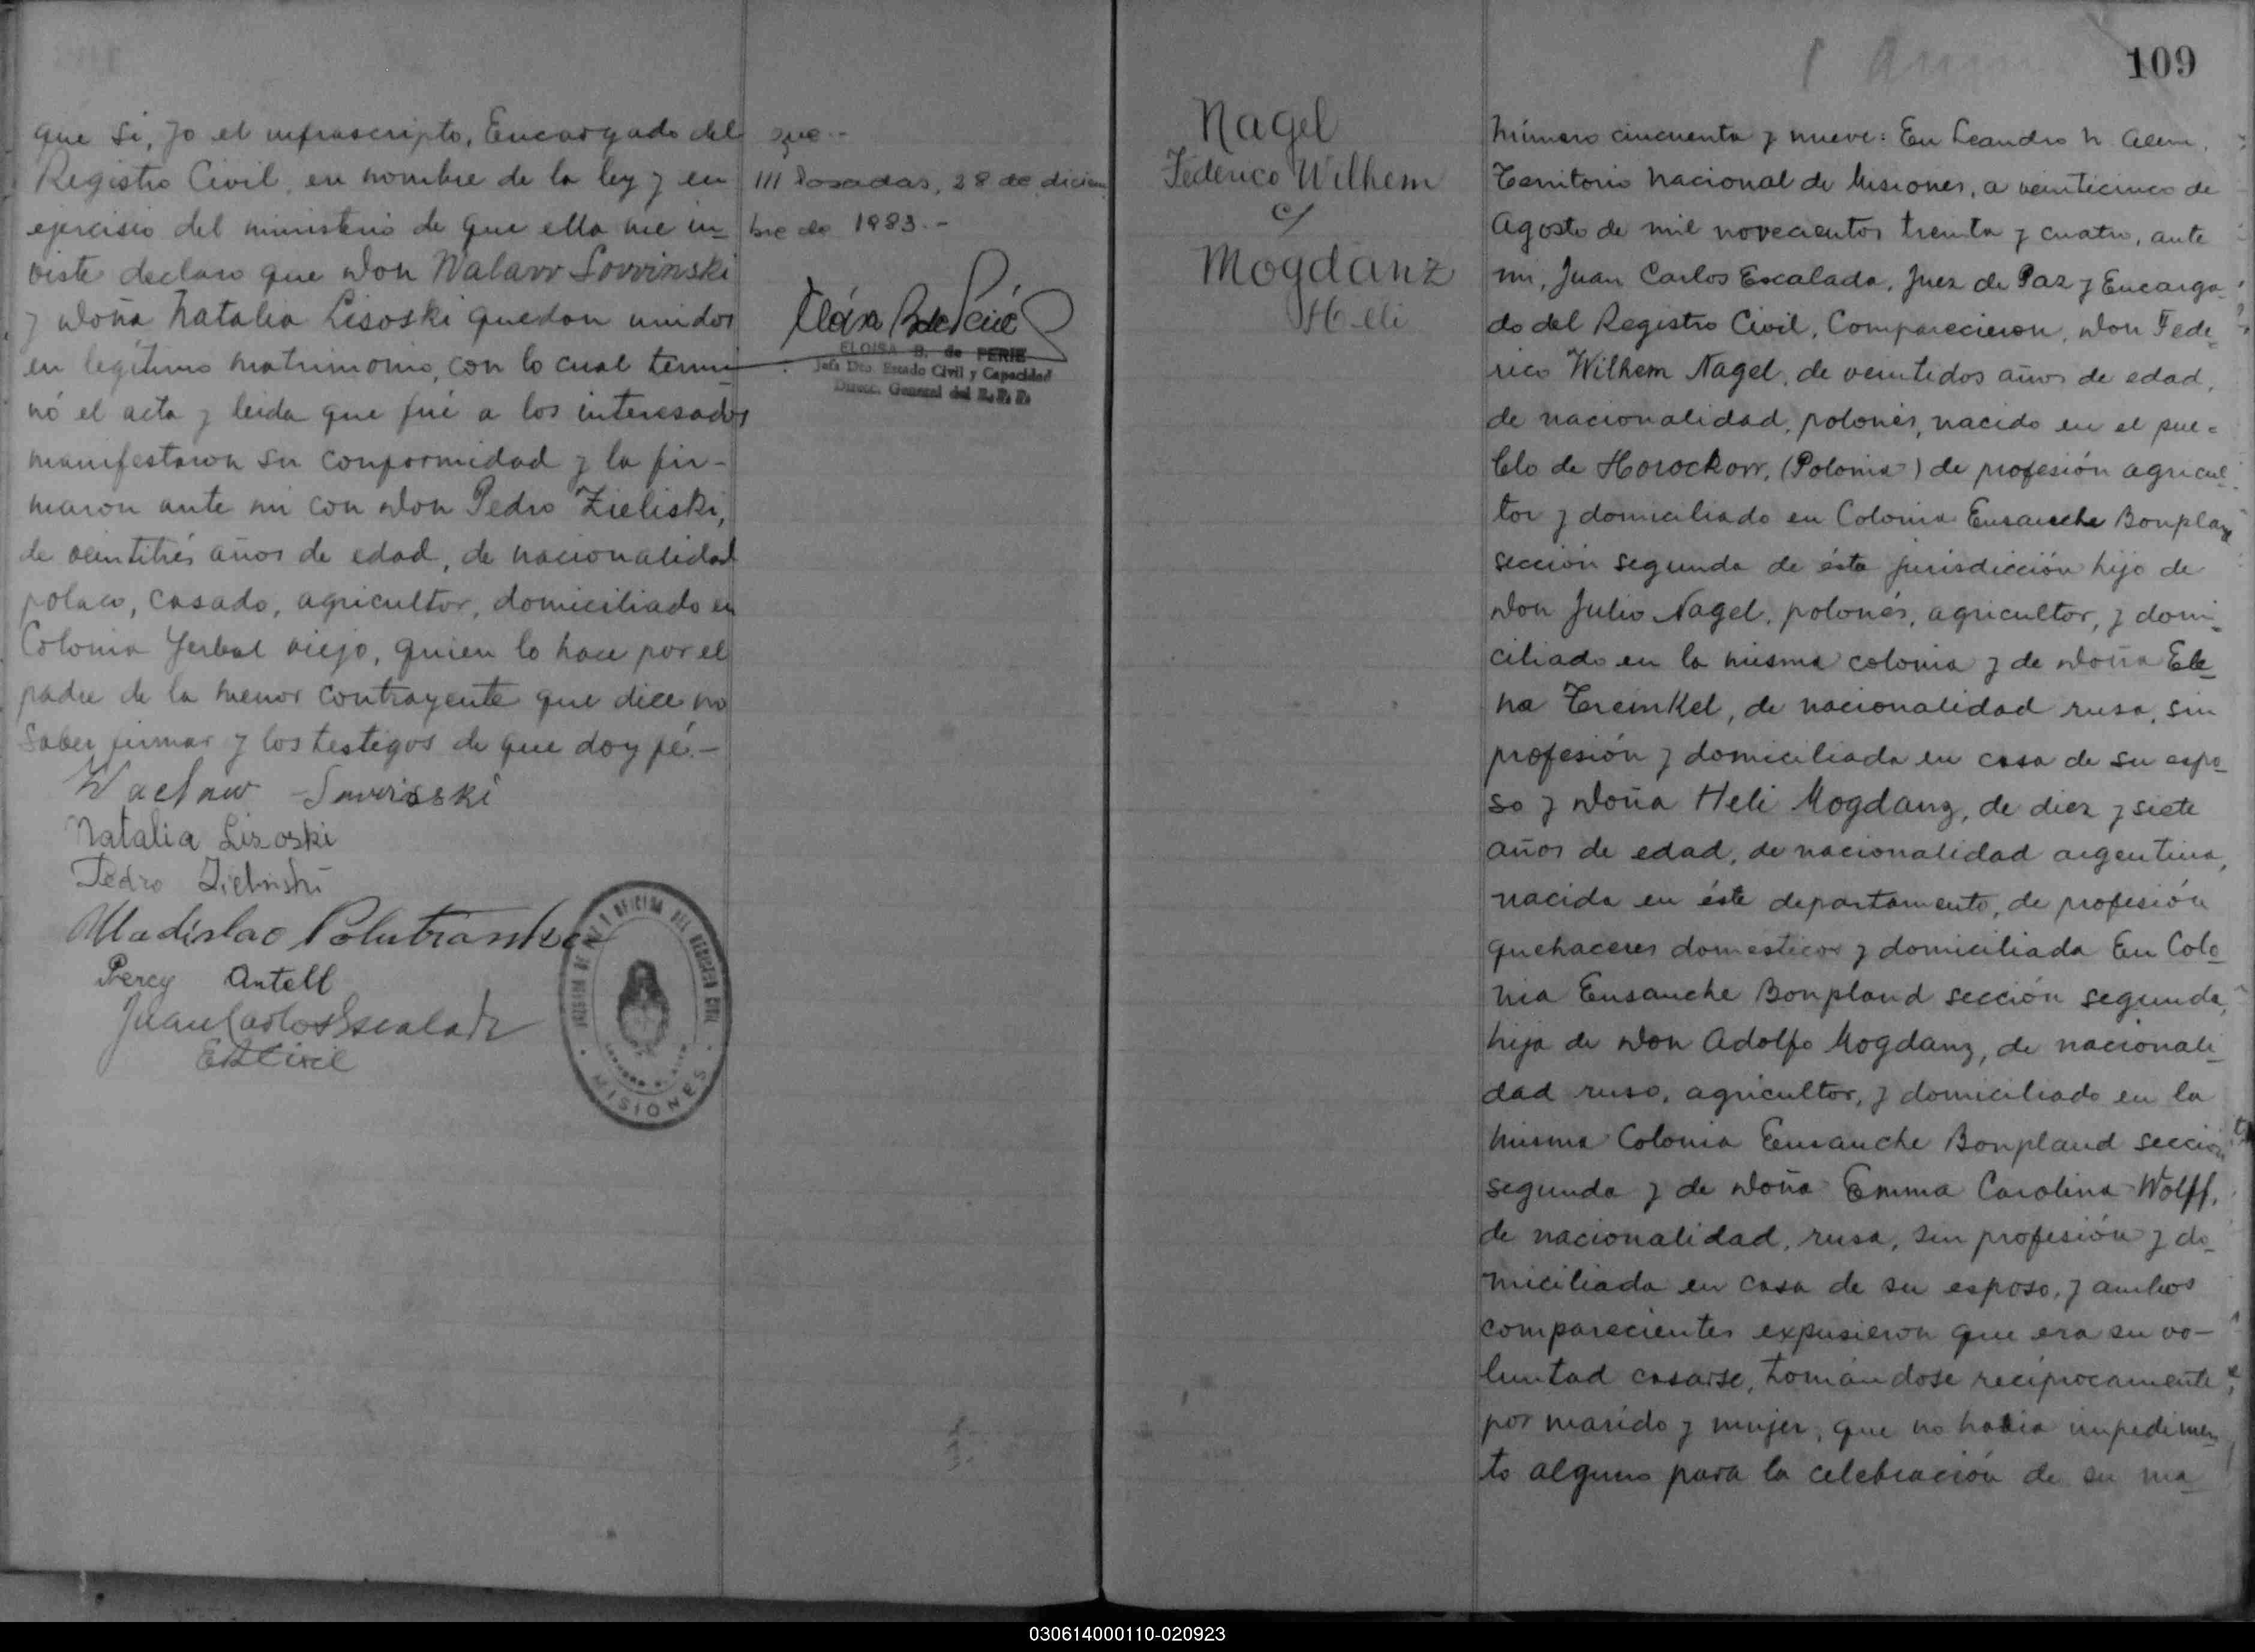 que si, yo el infrascripto, Encargado del
Registro Civil, en nombre de la ley y en
ejercisio del ministerio de que ella me in-
viste declaro que don Walavv Sovvinski
y doña Natalia Lisoski quedan unidos
en legítimo matrimonio, con lo cual termi-
nó el acta y leida que fué a los interesados
manifestaron su conformidad y la fir-
maron ante mi con don Pedro Zieliski,
de veintitrés años de edad, de nacionalidad
polaco, casado, agricultor, domiciliado en
Colonia Yerbal viejo, quien lo hace por el
padre de la menor contrayente que dice no
saber firmar y los testigos de que doy fé.-
Wacław Sovvinski
Natalia Lisoski
Pedro Zielinski
Percy Antell
Juan Carlos Escalada
MISIONES
que.-
/// Posadas, 28 de diciem
bre de 1983.-
ELOISA B. de PERIE
Jefa Dto. Estado Civil y Capacidad
Direcc. General del R.P.P.
Nagel
Federico Wilhem
c/
Mogdanz
Heli
109
Número cincuenta y nueve: En Leandro N. Alem,
Territorio Nacional de Misiones, a veinticinco de
Agosto de mil novecientos treinta y cuatro, ante
mi, Juan Carlos Escalada, Juez de Paz y Encarga-
do del Registro Civil, Comparecieron, don Fede-
rico Wilhem Nagel, de veintidos años de edad,
de nacionalidad, polonés, nacido en el pue-
blo de Horockovv, (Polonia) de profesión agricul-
tor y domiciliado en Colonia Ensanche Bonpland
sección segunda de ésta jurisdicción hijo de
don Julio Nagel, polonés, agricultor, y domi-
ciliado en la misma colonia y de doña Ele-
na Treinkel, de nacionalidad rusa, sin
profesión y domiciliada en casa de su espo-
so y doña Heli Mogdanz, de diez y siete
años de edad, de nacionalidad argentina,
nacida en éste departamento, de profesión
quehaceres domesticos y domiciliada En Colo-
nia Ensanche Bonpland sección segunda,
hija de don Adolfo Mogdanz, de nacionali-
dad ruso, agricultor, y domiciliado en la
misma Colonia Ensanche Bonpland sección
segunda y de doña Emma Carolina Wolff,
de nacionalidad, rusa, sin profesión y do-
miciliada en casa de su esposo, y ambos
comparecientes expusieron que era su vo-
luntad casarse, tomándose recíprocamente
por marido y mujer, que no habia impedimen-
to alguno para la celebración de su ma-
030614000110-020923